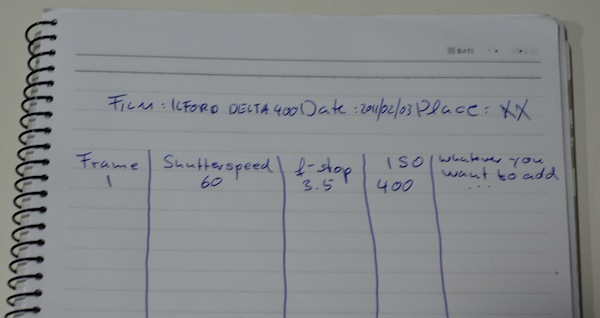 DATE
Film : ILFORD DELTA 400 Date : 2011/02/03 Place : XX
Frame Shutterspeed f-stop ISO whatever you
1 60 3.5 400 want to add
...